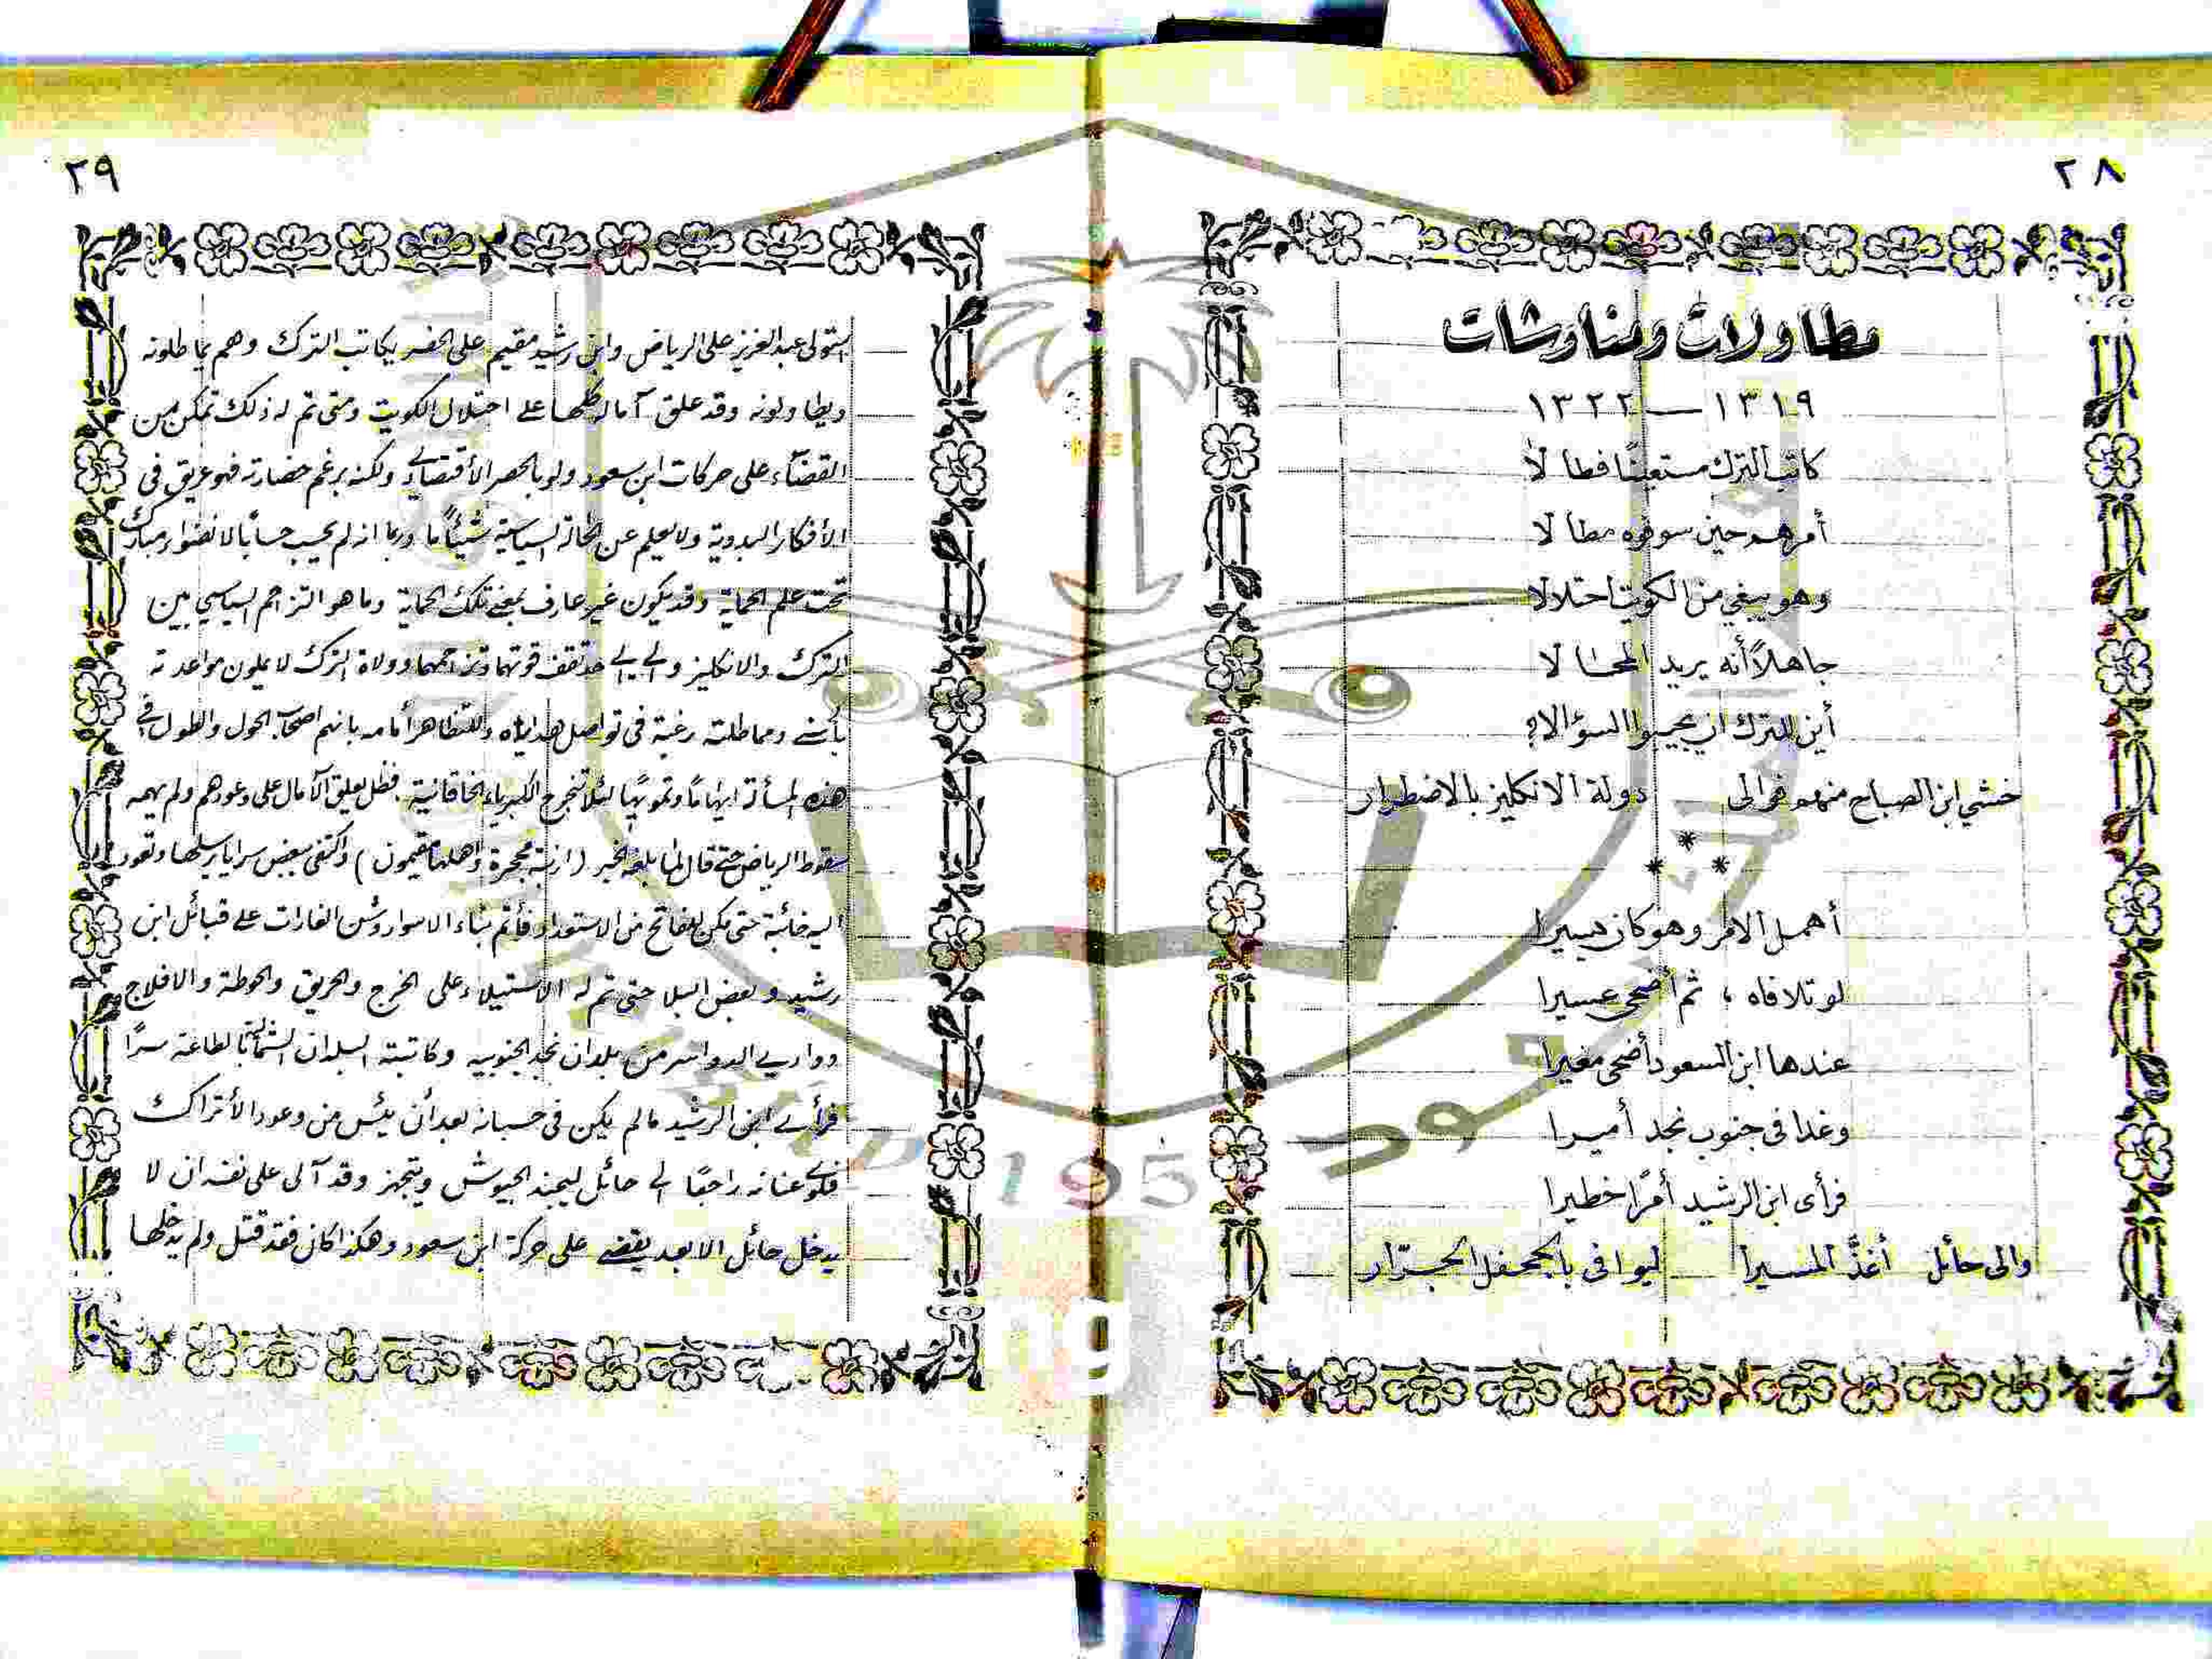 ٢٨
مطاولات ومناوشات
١٣١٩ — ١٣٢٢
كاتب الترك مستعينًا فطالا
أمرهم حين سوفوه مطالا
وهو يبغي من الكويت احتلالا
جاهلاً أنه يريد المحالا
أين للترك ان يجيبوا السؤالا؟
خشي ابن الصباح منهم فوالى دولة الانكليز بالاضطرار
* * *
أهمل الامر وهو كان يسيرا
لو تلافاه ، ثم أضحى عسيرا
عندها ابن السعود أضحى مغيرا
وغدا في جنوب نجد أميرا
فرأى ابن الرشيد أمرًا خطيرا
والى حائل أغذَّ المسيرا ليوافي بالجحفل الجرّار
٢٩
استولى عبد العزيز على الرياض وابن رشيد مقيم على الحفر يكاتب الترك وهم يماطلونه
ويطاولونه وقد علق آماله كلها على احتلال الكويت ومتى تم له ذلك تمكن من
القضاء على حركات ابن سعود ولو بالحصر الأقتصادي ولكنه برغم حضارته فهو عريق في
الأفكار البدوية ولا يعلم عن الحالة السياسية شيئاً ما وربما انه لم يحسب حسابًا لانضواء مبارك
تحت علم الحماية وقد يكون غير عارف بمعنى تلك الحماية وما هو التزاحم السياسي بين
الترك والانكليز والى اي حد تقف قوتهما وتزاحمهما وولاة الترك لا يملون مواعدته
ومماطلته رغبة في تواصل هداياه وللتظاهر أمامه بانهم اصحاب الحول والطول في
هذه المسألة ايهامًا وتمويهًا لئلا تنجرح الكبرياء الخاقانية . فظل يعلق الآمال على وعودهم ولم يهمه
سقوط الرياض حتى قال لما بلغه الخبر ( ارنبة مجحرة وأهلها مقيمون ) واكتفى ببعض سرايا يرسلها وتعود
اليه خائبة حتى تمكن الفاتح من الاستعداد فأتم بناء الاسوار وشن الغارات على قبائل ابن
رشيد وبعض البلا حتى تم له الاستيلاء على الخرج والحريق والحوطة والافلاج
ووادي الدواسر من بلدان نجد الجنوبيه وكاتبته البلدان الشمالية بالطاعة سرًا
فرأى ابن الرشيد مالم يكن في حسبانه بعد أن يئس من وعود الأتراك
فلوى عنانه راجعًا الى حائل ليجند الجيوش ويتجهز وقد آلى على نفسه ان لا
يدخل حائل الا بعد يقضي على حركة ابن سعود وهكذا كان فقد قتل ولم يدخلها